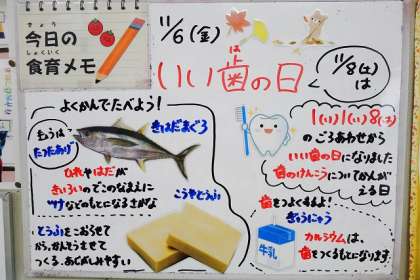 きょう
今日の
しょくいく
食育メモ
11/6(金)
いい歯の日
は
11/8(土)
は
よくかんでたべよう!
もうは
たつたあげ
きはだまぐろ
ひれやはだが
きいろいのでこのなまえに
ツナなどもになるさかな
こうやどうふ
とうふをこおらせて
から、かんそうさせて
つくる。あじがしみやすい
1(い)1(い)8(は)
のごろあわせから
いい歯の日になりました
歯のけんこうについてかんが
える日
歯をつよくするよ!
ぎゅうにゅう
牛乳
カルシウムは、
歯をつくるもとになります